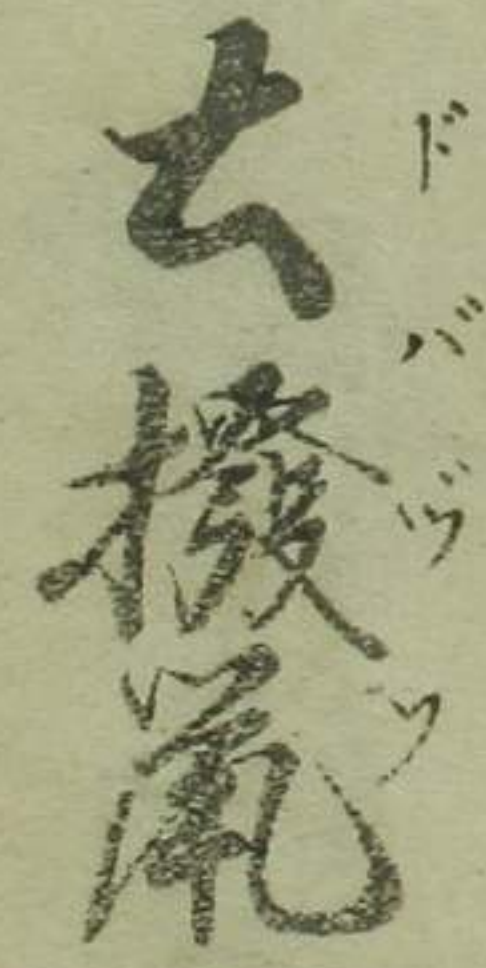 土撥鼠
ドバヅ